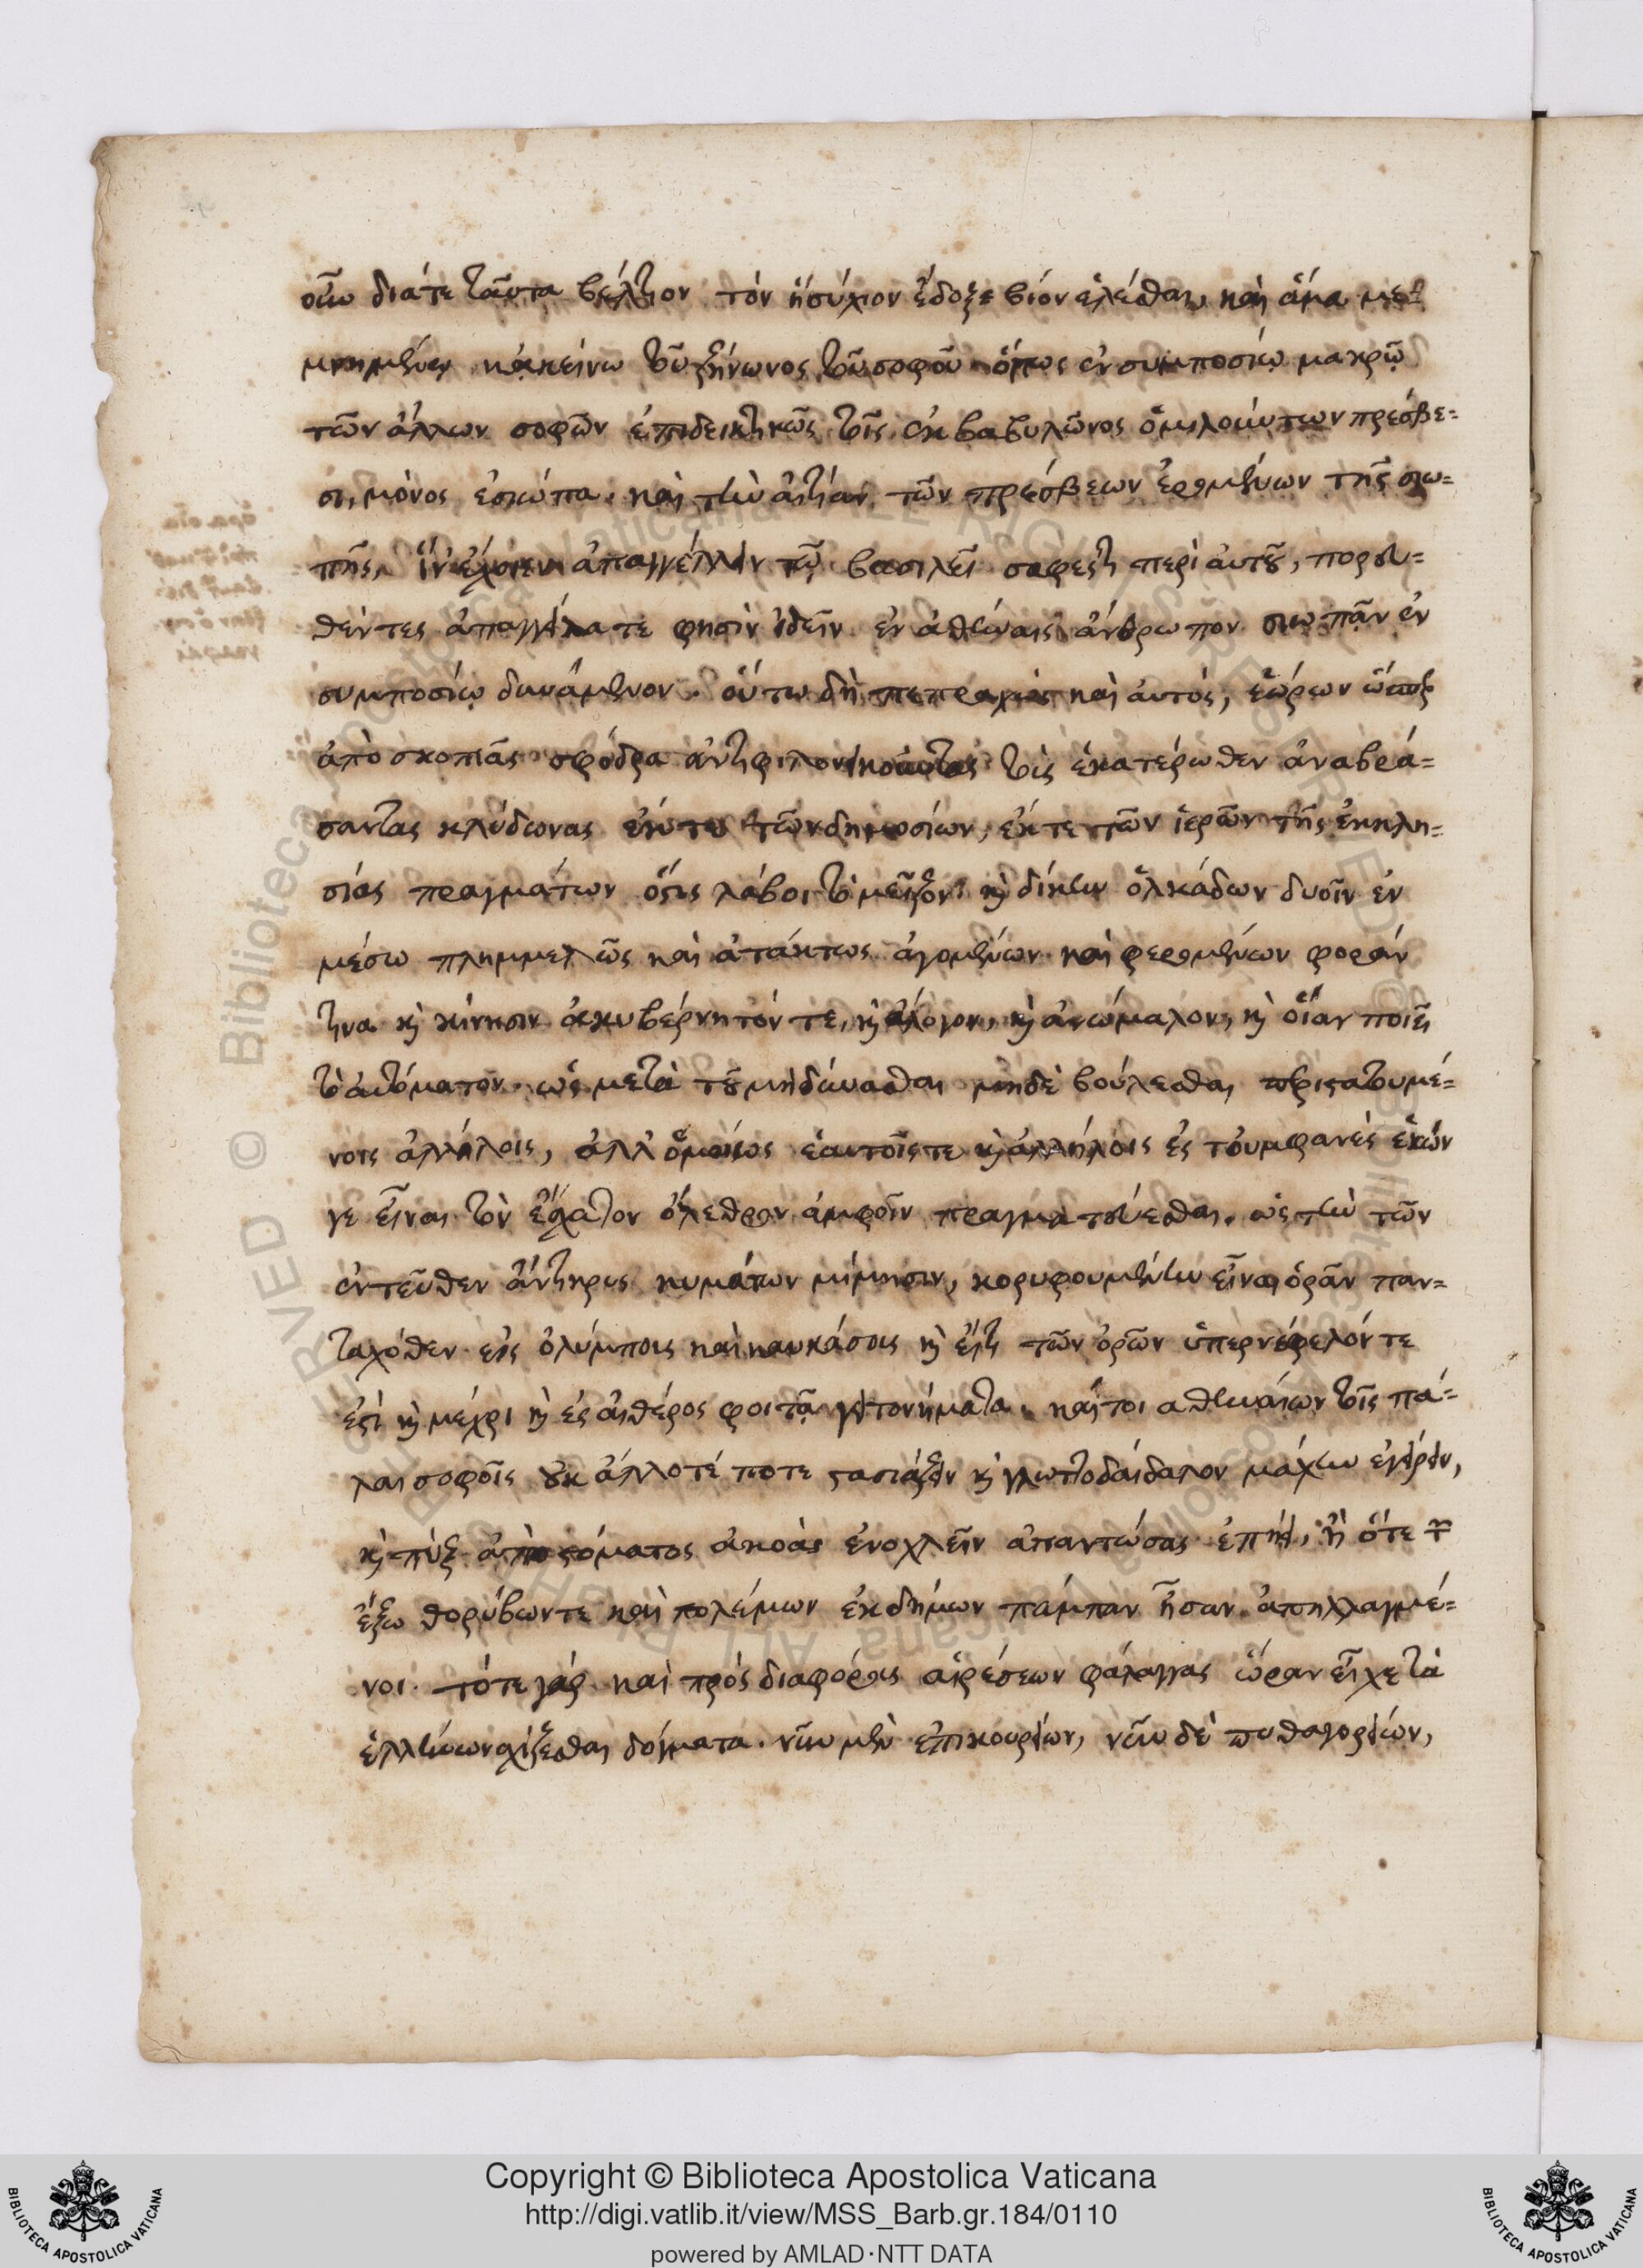 οὖν διά τε ταῦτα βέλτιον τὸν ἡσύχιον ἔδοξε βίον ἑλέσθαι, καὶ ἅμα με-
μνημένῳ κἀκείνω τοῦ ζήνωνος τοῦ σοφοῦ ὅπως ἐν συμποσίῳ μακρῷ
τῶν ἄλλων σοφῶν ἐπιδεικτικῶς τοῖς ἐκ βαβυλῶνος ὁμιλούντων πρέσβε=
σι, μόνος ἐσιώπα. καὶ τὴν αἰτίαν τῶν πρέσβεων ἐρομένων τῆς σιω=
πῆς, ἵν' ἔχοιεν ἀπαγγέλλειν τῷ βασιλεῖ σαφές τι περὶ αὐτοῦ, πορευ=
θέντες ἀπαγγείλατε φησὶν ἰδεῖν ἐν ἀθήναις ἄνθρωπον σιωπᾶν ἐν
συμποσίῳ δυνάμενον. οὕτω δὴ πεπραχὼς καὶ αὐτός, ἑώρων ὥσπερ
ἀπὸ σκοπιᾶς σφόδρα ἀντιφιλονεικοῦντας τοὺς ἑκατέρωθεν ἀναβρά=
σαντας κλύδωνας ἔκ τε τῶν δημοσίων, ἔκ τε τῶν ἱερῶν τῆς ἐκκλη=
σίας πραγμάτων ὅστις λάβοι τὸ μεῖζον· καὶ δίκην ὁλκάδων δυοῖν ἐν
μέσω πλημμελῶς καὶ ἀτάκτως ἀγομένων καὶ φερομένων φορὰν
τινα καὶ κίνησιν ἀκυβέρνητόν τε, καὶ ἄλογον, καὶ ἀνώμαλον, καὶ οἵαν ποιεῖ
τὸ αὐτόματον. ὡς μετὰ τοῦ μὴ δύνασθαι μηδὲ βούλεσθαι
νοις ἀλλήλοις, ἀλλ' ὁμοίως ἑαυτοῖς τε καὶ ἀλλήλοις ἐς τοὐμφανὲς ἑκών
γε εἶναι τὸν ἔσχατον ὄλεθρον ἀμφοῖν πραγματεύεσθαι. ὡς τὴν τῶν
ἐντεῦθεν ἄντικρυς κυμάτων μίμησιν, κορυφουμένην εἶναι ὁρᾶν παν=
ταχόθεν εἰς ὀλύμπους καὶ καυκάσους καὶ εἴ τι τῶν ὀρῶν ὑπερνέφελόν τε
ἐστὶ καὶ μέχρι καὶ ἐς αἰθέρος φοιτᾷ γειτονήματα. καίτοι ἀθηναίων τοῖς πά=
λαι σοφοῖς οὐκ ἄλλοτέ ποτε στασιάζειν καὶ γλωττοδαίδαλον μάχην ἐγείρειν,
καὶ πὺξ ἀπὸ στόματος ἀκοὰς ἐνοχλεῖν ἀπαντώσας ἐπήει, ἢ ὅτε τῶν
ἔξω θορύβων τε καὶ πολέμων ἐκδήμων πάμπαν ἦσαν ἀπηλλαγμέ=
νοι. τότε γὰρ καὶ πρὸς διαφόρους αἱρέσεων φάλαγγας ὥραν εἶχε τὰ
ἑλλήνων σχίζεσθαι δόγματα. νῦν μὲν ἐπικουρείων, νῦν δὲ πυθαγορείων,
Copyright © Biblioteca Apostolica Vaticana
http://digi.vatlib.it/view/MSS_Barb.gr.184/0110
powered by AMLAD·NTT DATA